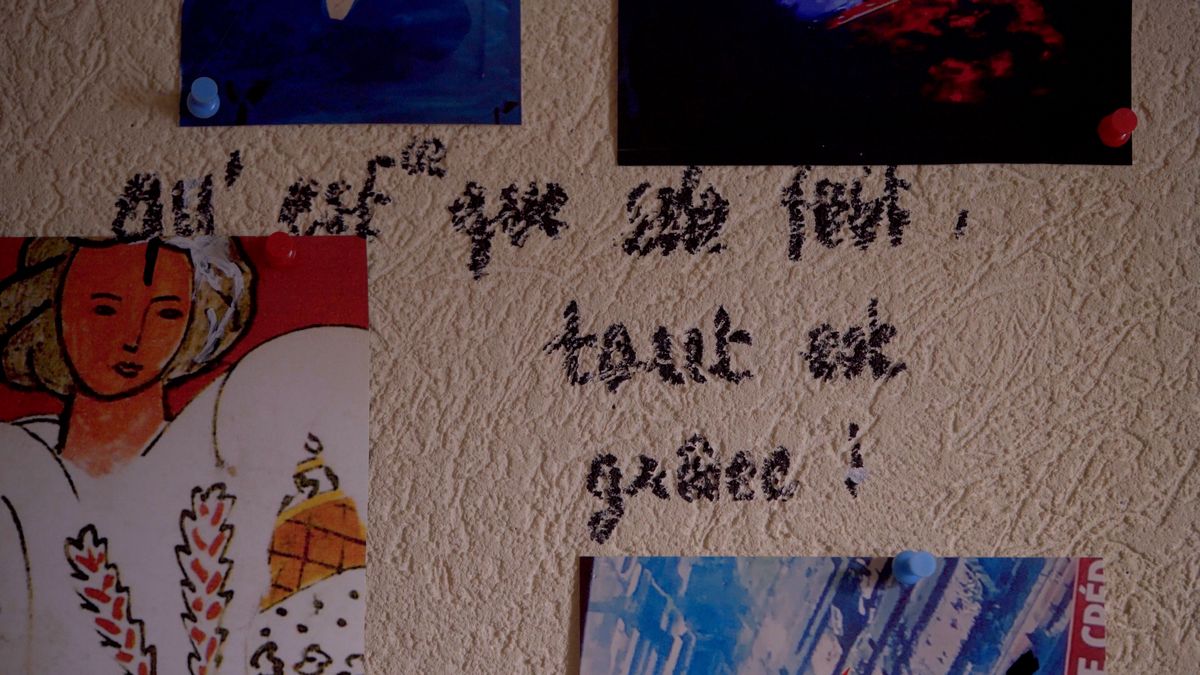 Qu'est-ce que cela fait,
tout est
grâce !
E CRÉD